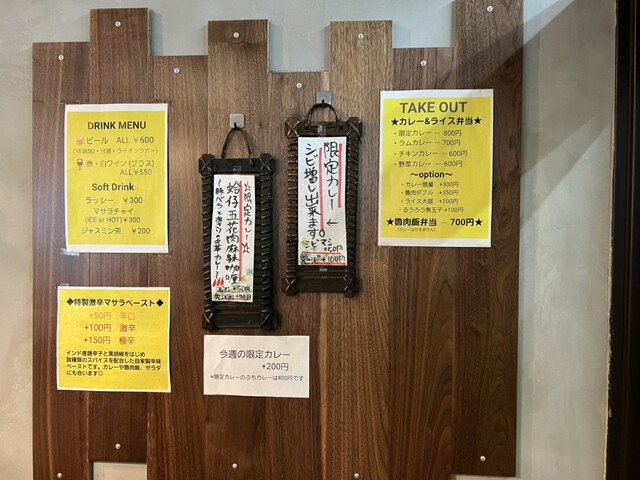 DRINK MENU
ビール ALL ¥600
(YEBISU・台湾・ライオンラガー)
赤・白ワイン(グラス)
ALL ¥550
Soft Drink
ラッシー ¥300
マサラチャイ
(ICE or HOT) ¥300
ジャスミン茶 ¥200
◆特製激辛マサラペースト◆
+50円 辛口
+100円 激辛
+150円 極辛
インド産唐辛子と黒胡椒をはじめ
数種類のスパイスを配合した自家製辛味
ペーストです。カレーや魯肉飯、サラダ
にも合います◎
☆限定カレー☆
蛤仔五花肉麻辣咖喱
今週の限定カレー
+200円
*限定カレーのぷちカレーは400円です
限定カレー←
シビ増し出来ます。
シビマシ
+50円
+100円
TAKE OUT
★カレー&ライス弁当★
・限定カレー ― 800円
・ラムカレー ― 700円
・チキンカレー ― 600円
・野菜カレー ― 600円
〜option〜
・カレー増量 +300円
・魯肉ダブル +350円
・ライス大盛 +100円
・るうろう煮玉子 +100円
★魯肉飯弁当 ― 700円★
(カレーは付きません)